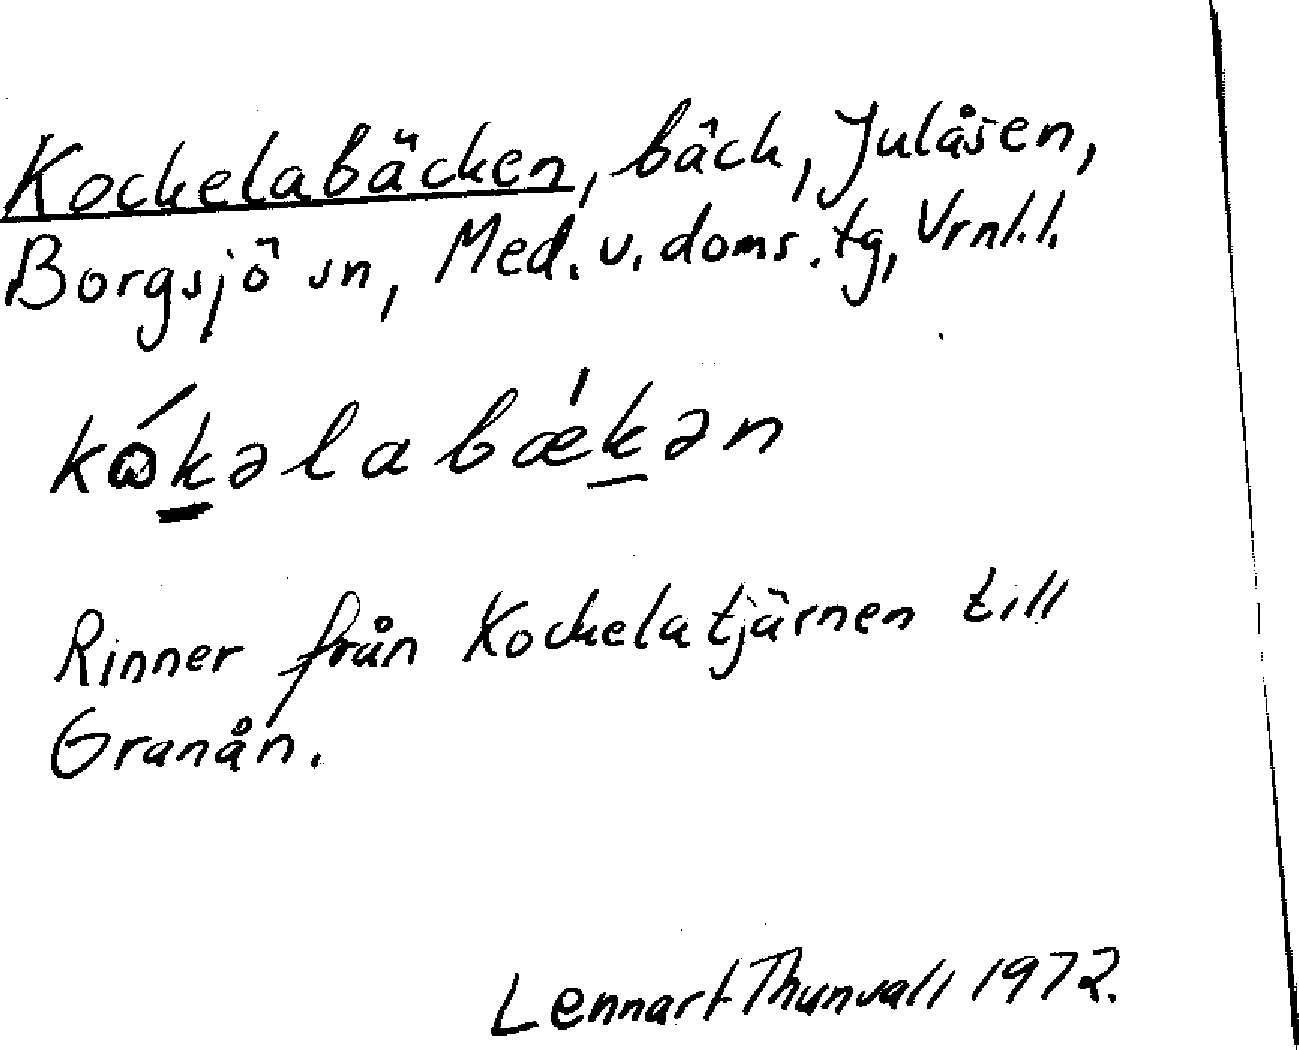 Kockelabäcken, bäck, Julåsen,
Borgsjö sn, Med. v. doms.tg, Vrnl.l.
kώ́k̲əlabǽk̲ən
Rinner från Kockelatjärnen till
Granån.
Lennart Thunvall 1972.